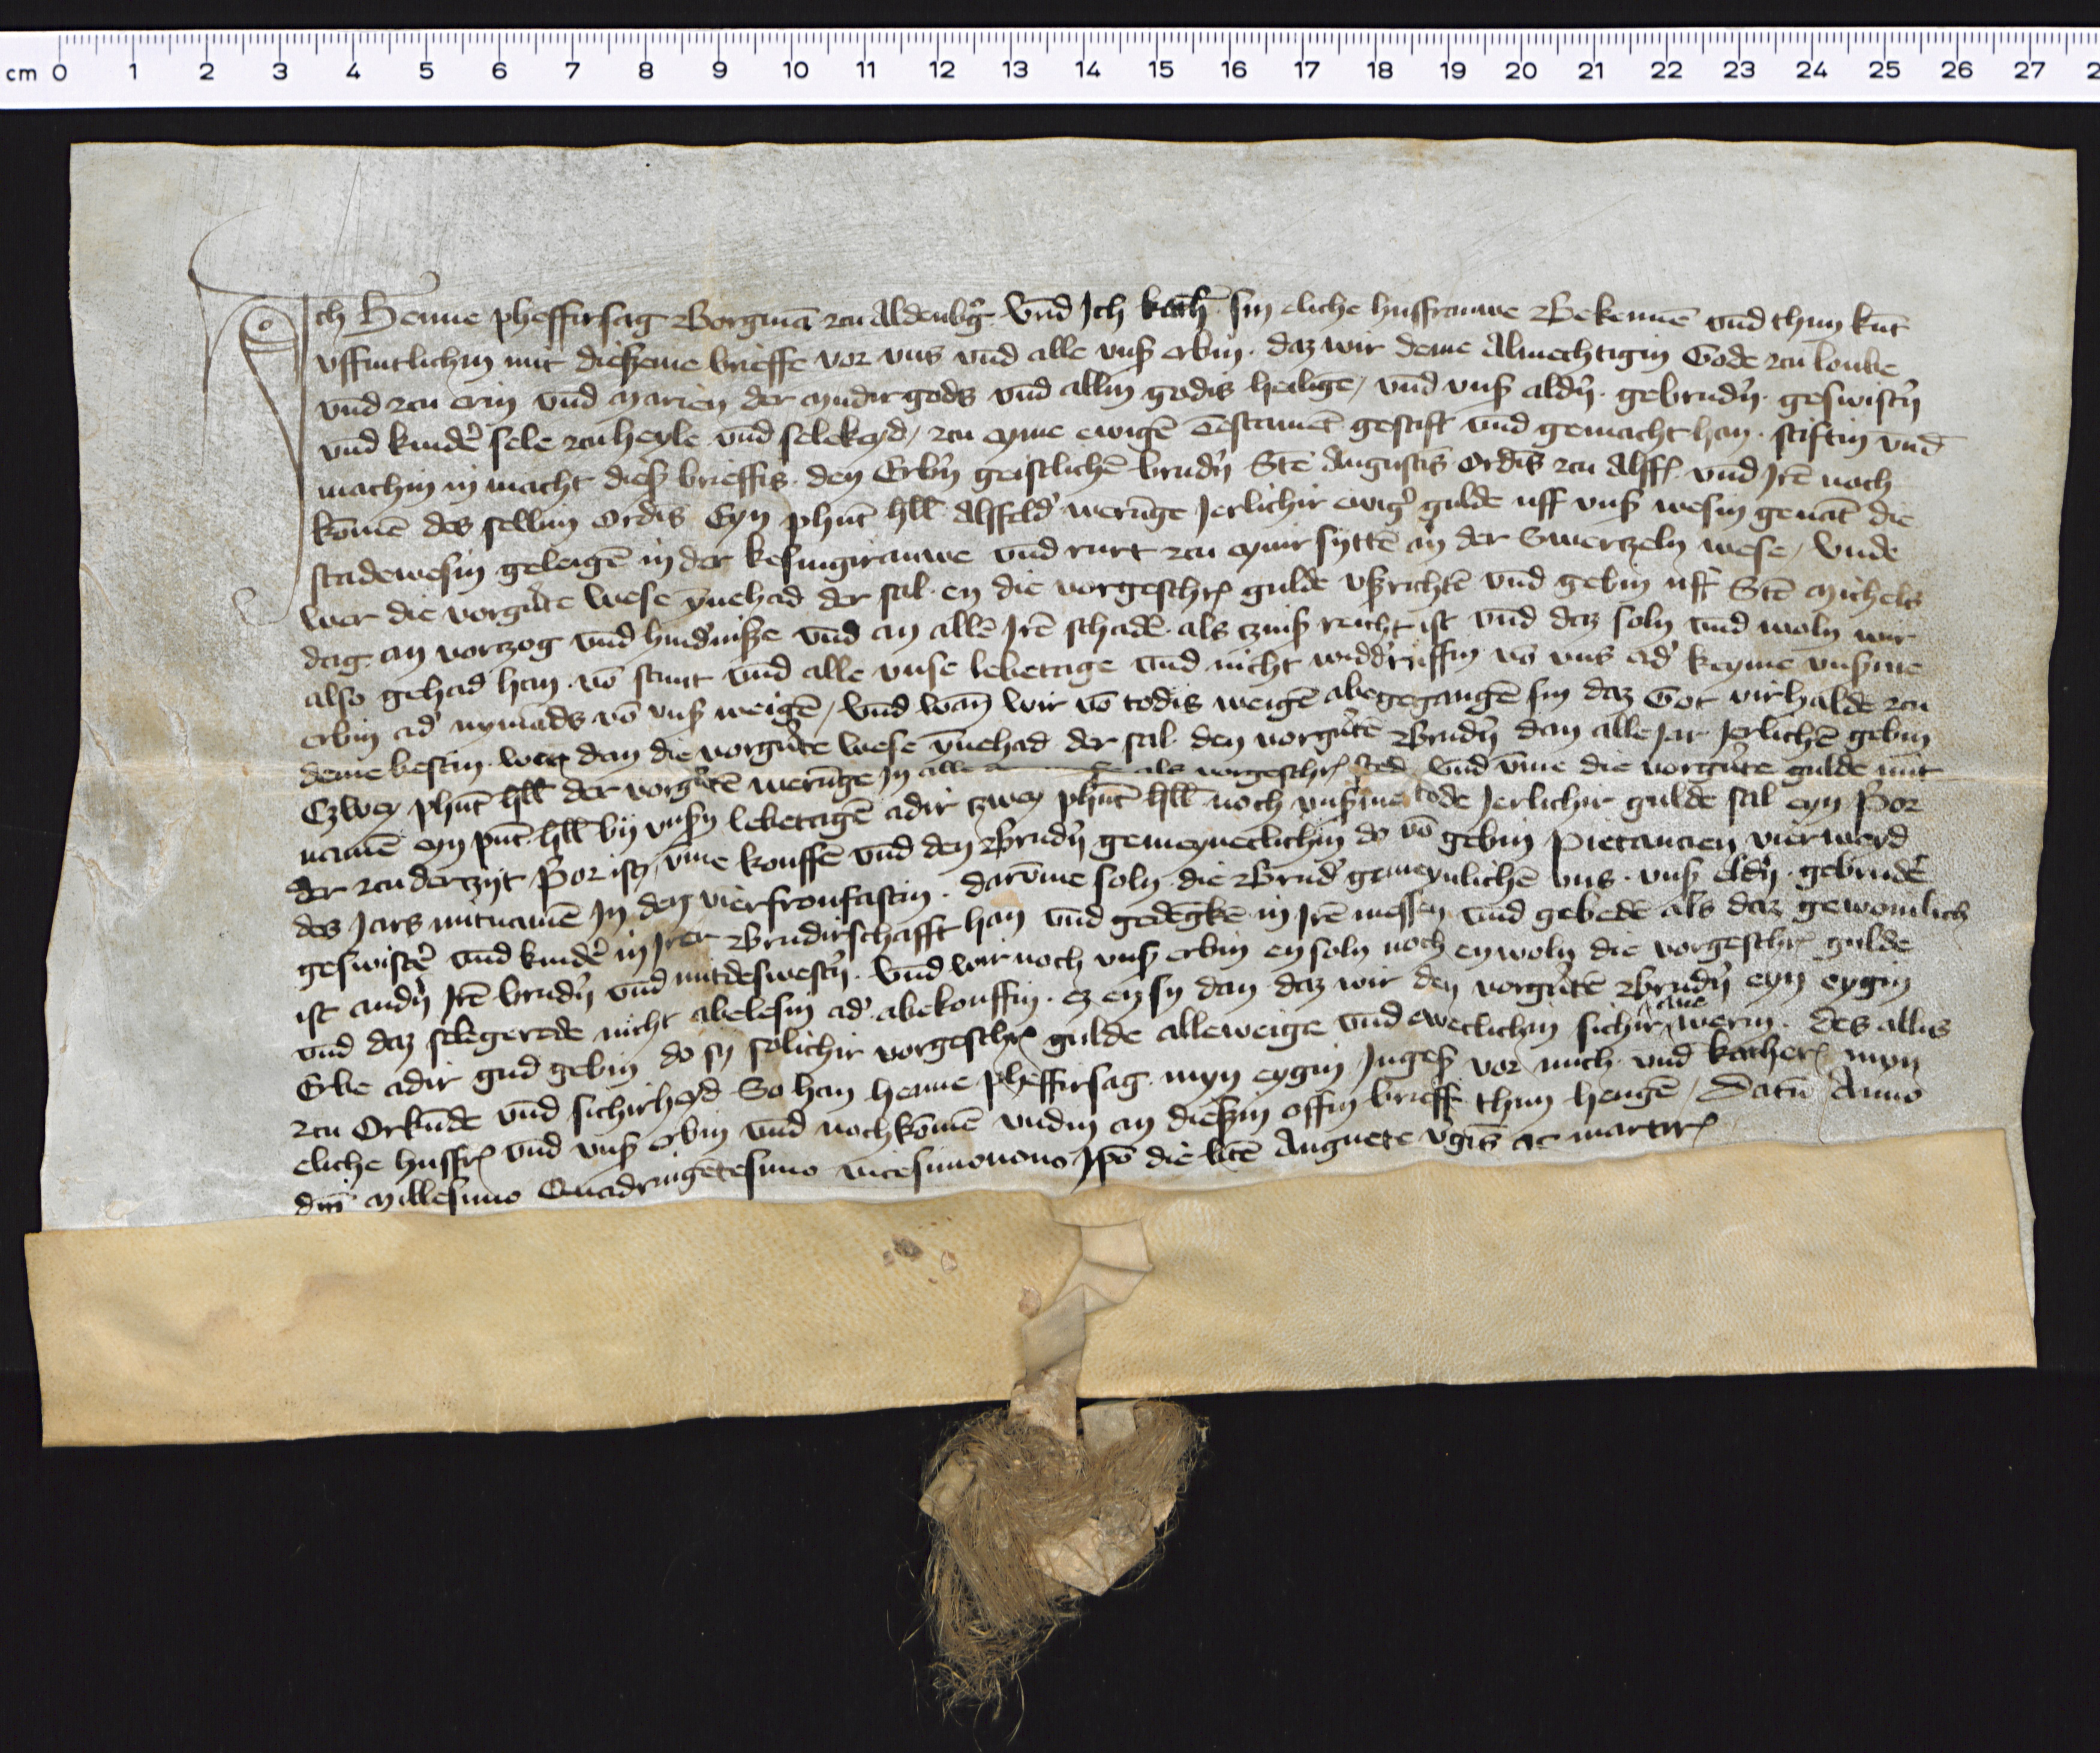 cm 0 1 2 3 4 5 6 7 8 9 10 11 12 13 14 15 16 17 18 19 20 21 22 23 24 25 26 27 2
Ich Henne pheffirsag Borgmā zcu Aldenbg̾ vnd Ich kath̾ sin eliche husfrauwe Bekennē vnd thun kūt
vffintlichin mit dießeme brieffe vor vns vnd alle vnß erbin · daz wir deme Almechtigin Gode zcu loube
vnd zcu erin vnd Marien der mudir gods vnd allin godis heiligē / vnd vnß aldn̾ · gebrudn̾ · geswistn̾
vnd kindē sele zcu heyle vnd selekeyd / zcu eyme ewigē Testamēt gestift vnd gemacht han · stiftin vnd
machin in macht dieß brieffis · den Erbn̾ geistlichē brudn̾ Stē Augustīs ordīs zcu Alsff vnd Irē noch
komē des selbin ordīs Eyn phūt hll̄ Alsfeld̾ werūge Jerlichir ewig̾ gulde uff vnß wesin genāt die
stadewesin geleigē in der kesingirauwe vnd rurt zcu eynir syttē an der Swertzeln wese / Vnde
wer die vorgn̄te wese ynnehad der sal · en die vorgeschr̄ gulde vßrichtē vnd gebin uff Stē Michels
dag · an vortzog vnd hindn̾iße vnd an allē Irē schadē · als tzinß reicht ist vnd daz soln vnd woln wir
also gehad han · vō stunt vnd alle vnse lebetage vnd nicht widd̾ruffin vō vns ad̾ keyme vnßme
erbin ad̾ nymāds vō vnß weigē / Vnd wan wir vō todis weigē abegegangē sin daz Got virhalde zcu
deme bestin · wer dan die vorgn̄te wese ynnehad der sal · den vorgn̄tē Brudn̾ dan alle Jar Jerlichē gebin
Czwey phūt hll̄ der vorgn̄tē werūge in alle als vorgeschr̄ sted vnd vme die vorgn̄te gulde mit
namē eyn pūt hll̄ by vnßn lebetagē adir tzwey phūt hll̄ noch vnßme tode Jerlichir gulde sal eyn P̾or
der zcu der tzyt P̾or ist / vme kouffē vnd den Brudn̾ gemeyneclichin do vō gebin Pietancien vierwerd
des Jars mit namē In den vier fronfastin · darvme soln die Brud̾ gemeynlichē vns · vnß eldn̾ · gebrud̾
geswist̾ vnd kind̾ in Irer Brudirschafft han vnd gedēgkē in Irē messen vnd gebedē als daz gewonlich
ist andn̾ Irē brudn̾ vnd mitdeswestn̾ · Vnd wir noch vnß erbin en soln noch enwoln die vorgeschr̄ gulde
vnd daz selegerede nicht abelesin ad̾ abekouffin · ez en sy dan daz wir den vorgn̄tē Brudn̾ eyn eygin
Erbe adir gud gebin do sy solichir vorgeschr̄ gulde alleweige vnd eweclichin sichir ane werin · des allis
zcu Orkūde vnd sichirheyd So han henne pheffirsag · myn eygin Ingeß vor mich vnd kather̄ myn
eliche husfr̄ vnd vnß erbin vnd nochkomē vndin an dießin offin brieff thun hengē / Datū Anno
dn̄i Millesimo Quadringētesimo vicesimonono Ipō die bt̄e Angnete v̾gīs ac martir̄